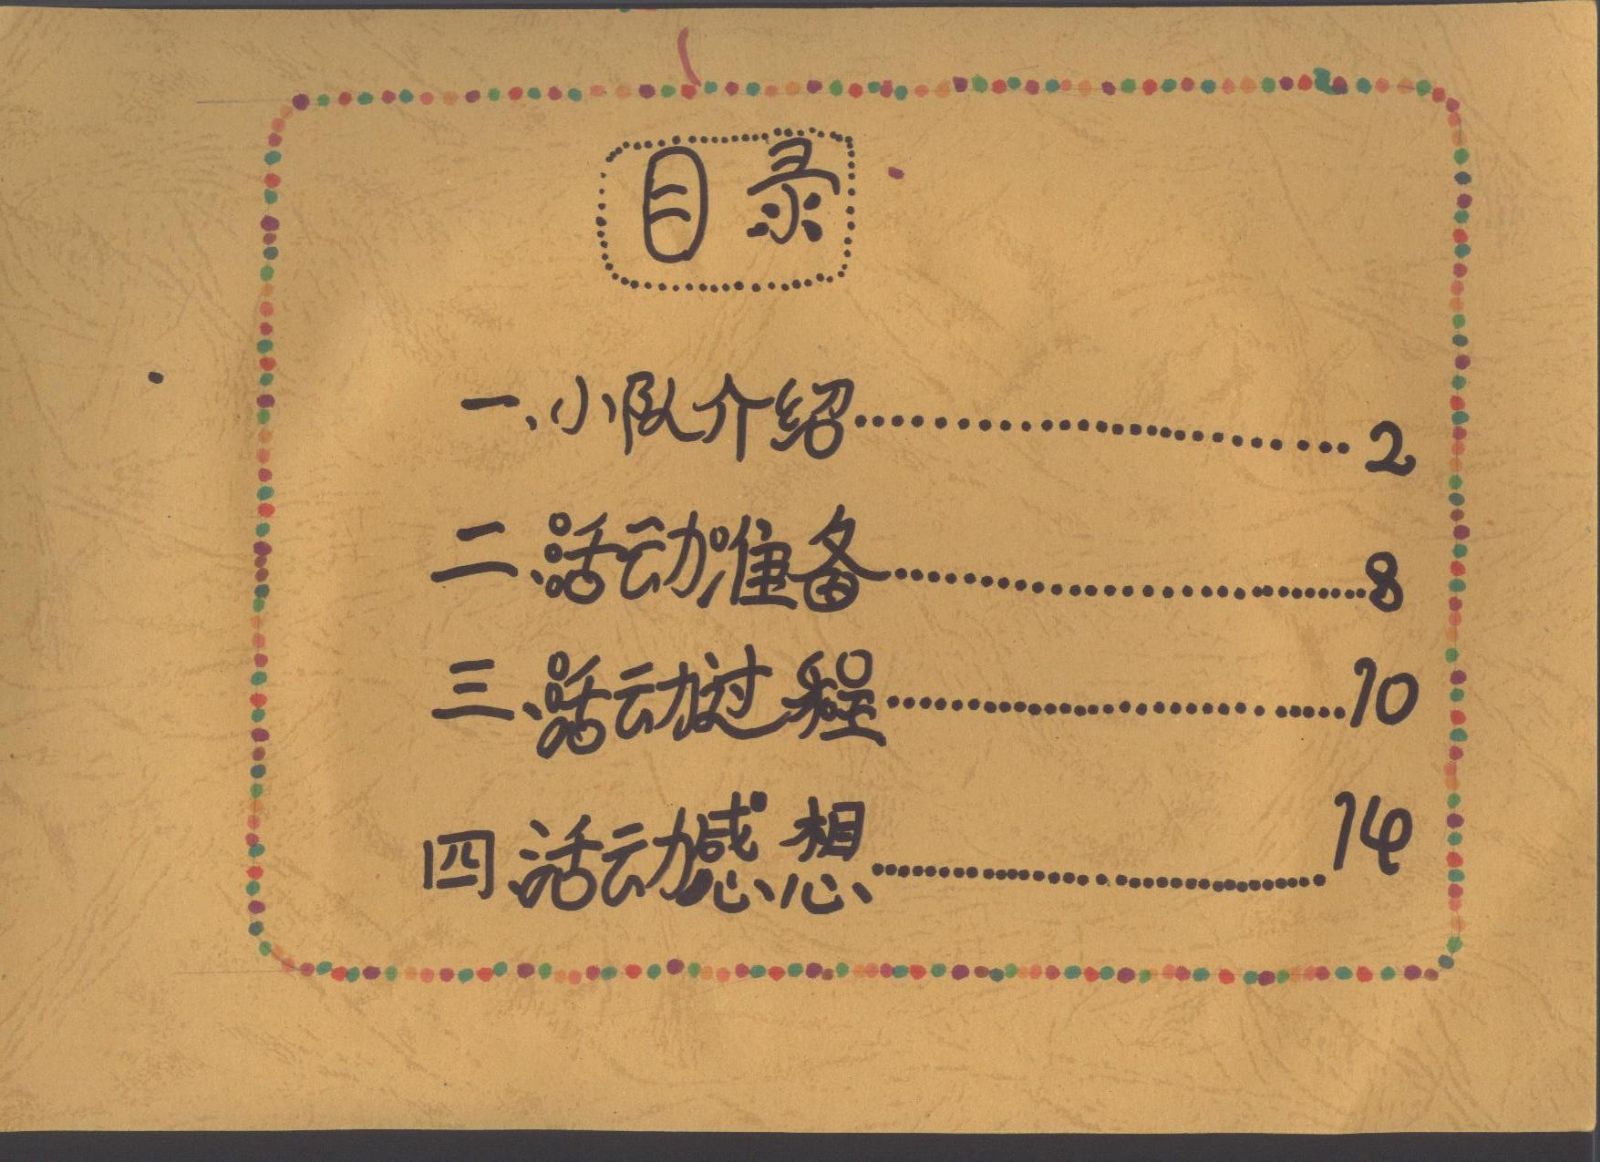 目录
一、小队介绍……………………2
二、活动准备……………………8
三、活动过程……………………10
四、活动感想……………………14